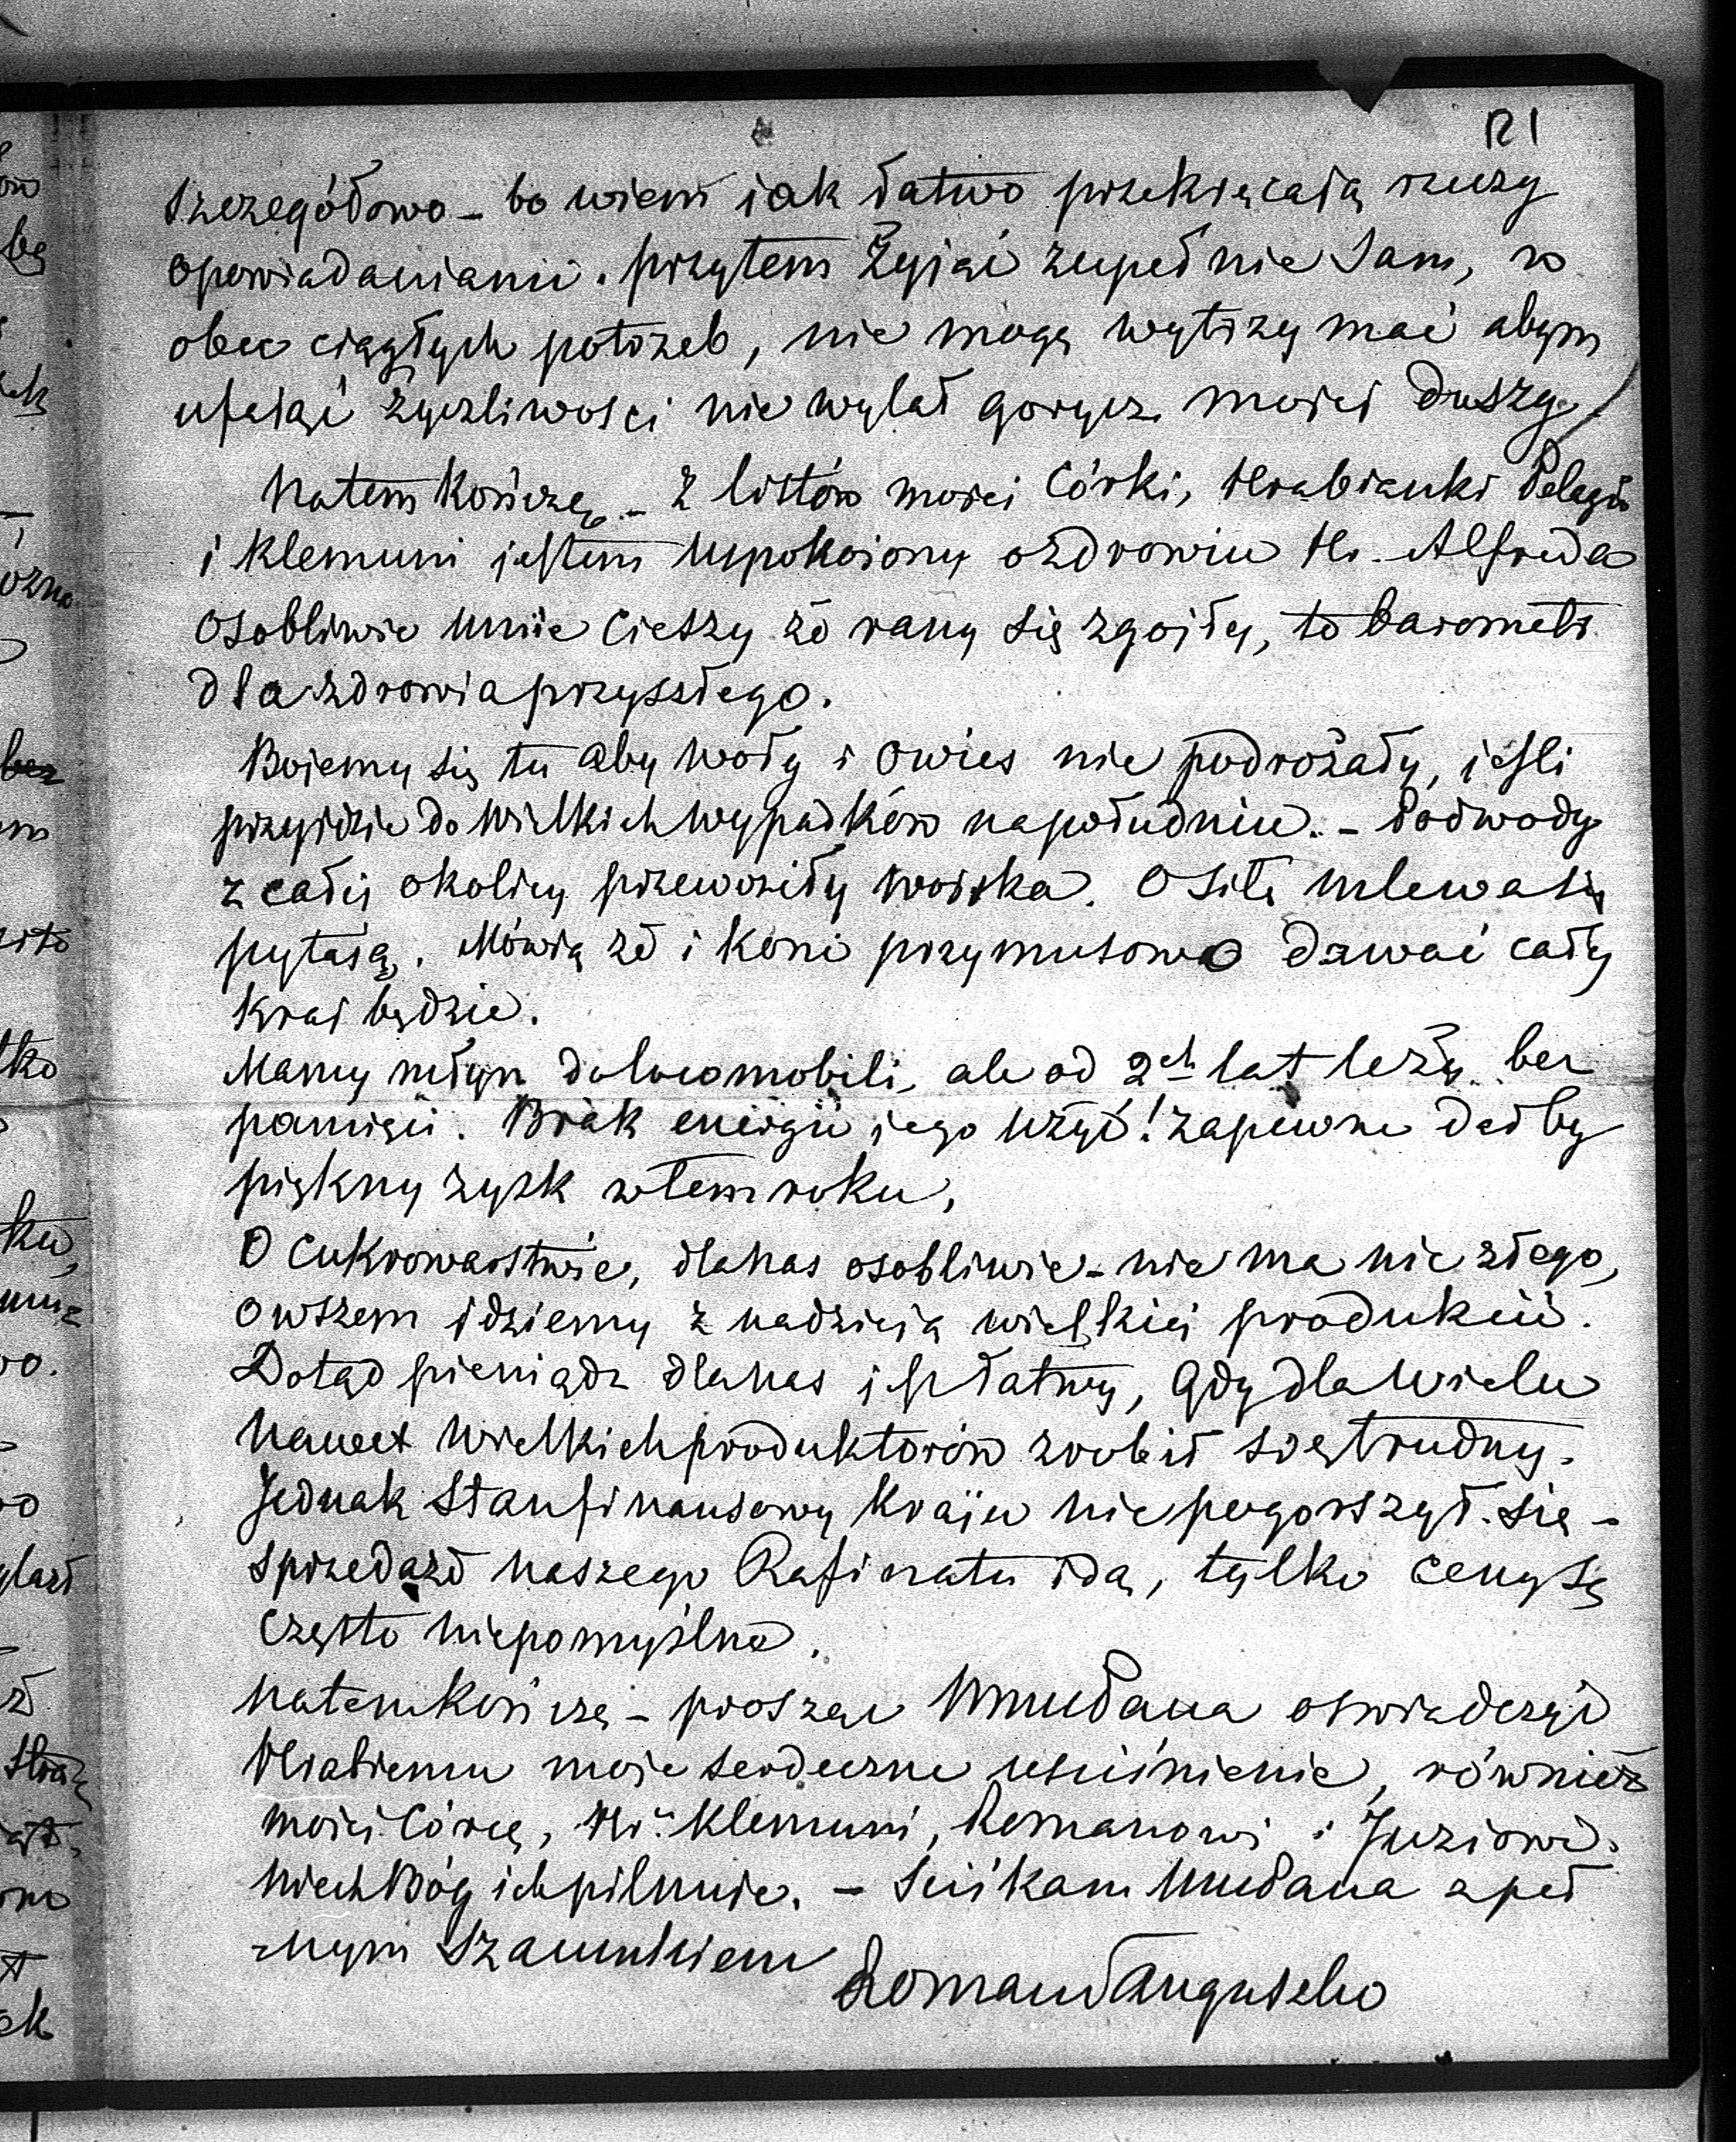 121
szczegółowo – bo wiem jak łatwo przekręcają rzeczy
opowiadaniami. przytem żyjąc zupełnie sam, w
obec ciągłych potrzeb, nie mogę wytrzymać abym
ufając życzliwości nie wylał gorycz mojej duszy.
Natem kończę – z listów mojej Córki, Hrabianki Pelagii
i Klemuni jestem uspokojony o zdrowiu Hr. Alfreda
osobliwie mnie cieszy że rany się zgoiły, to barometr
dla zdrowia przyszłego.
Bojemy się tu aby woły i owies nie podrożały, jeśli
przyjdzie do wielkich wypadków na południu. – Podwody
z całej okolicy przewoziły wojska. O sile mlewa się
pytają. Mówią że i koni przymusowo dawać cały
kraj będzie.
Mamy młyn do locomobili, ale od 2ch lat leży bez
pamięci. Brak energii jego użyć! zapewne dał by
piękny zysk w tem roku,
O Cukrowarstwie, dla nas osobliwie – nie ma nic złego,
owszem idziemy z nadzieją wielkiej produkcii.
Dotąd pieniądz dla nas jest łatwy, gdy dla wielu
nawet wielkich produktorów zrobił się trudny.
Jednak stan finansowy kraju nie pogorszył się –
sprzedaże naszego Rafinatu idą, tylko ceny są
często niepomyślne.
natem kończę – prosząc oswiadczyć
Hrabiemu moje serdeczne uściśnienie, również
mojej Córce, Hr. Klemuni, Romanowi i Juziowi.
niech Bóg ich pilnuje. – Ściskam z peł
nym szacunkiem
Roman Sanguszko